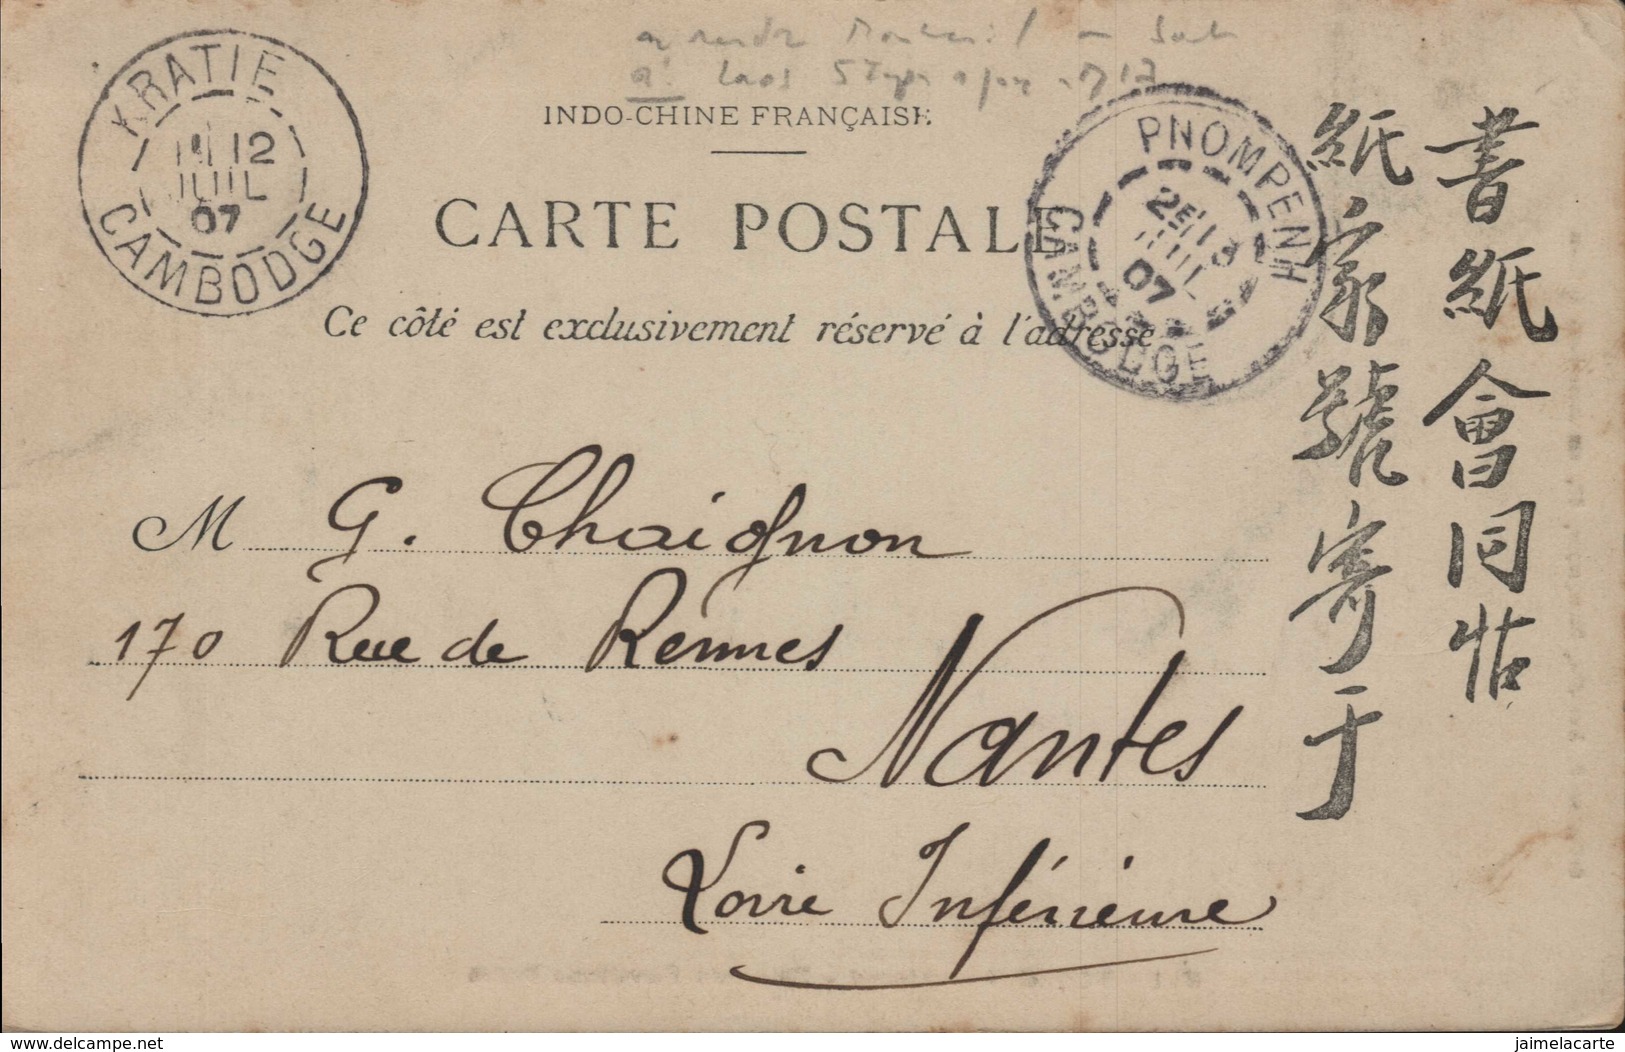 INDO-CHINE FRANÇAISE
CARTE POSTALE
Ce côté est exclusivement réservé à l'adresse
KRATIE
12
JUIL
07
CAMBODGE
PNOMPENH
2E
JUIL
07
CAMBODGE
M G. Chaignon
170 Rue de Rennes
Nantes
Loire Inférieure
書紙會同帖
紙家號寄于
www.delcampe.net
jaimelacarte